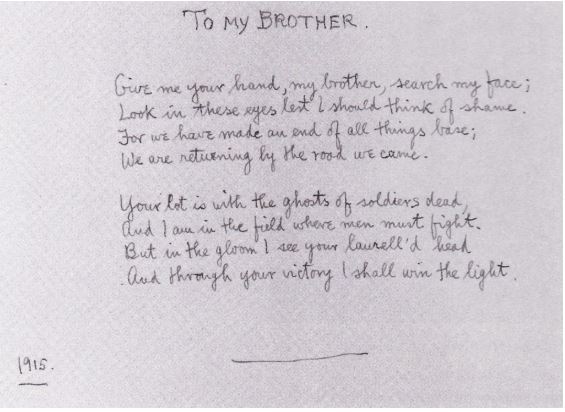 TO MY BROTHER.
Give me your hand, my brother, search my face;
Look in these eyes lest I should think of shame.
For we have made an end of all things base;
We are returning by the road we came.
Your lot is with the ghosts of soldiers dead,
And I am in the field where men must fight.
But in the gloom I see your laurell'd head
And through your victory I shall win the light.
1915.